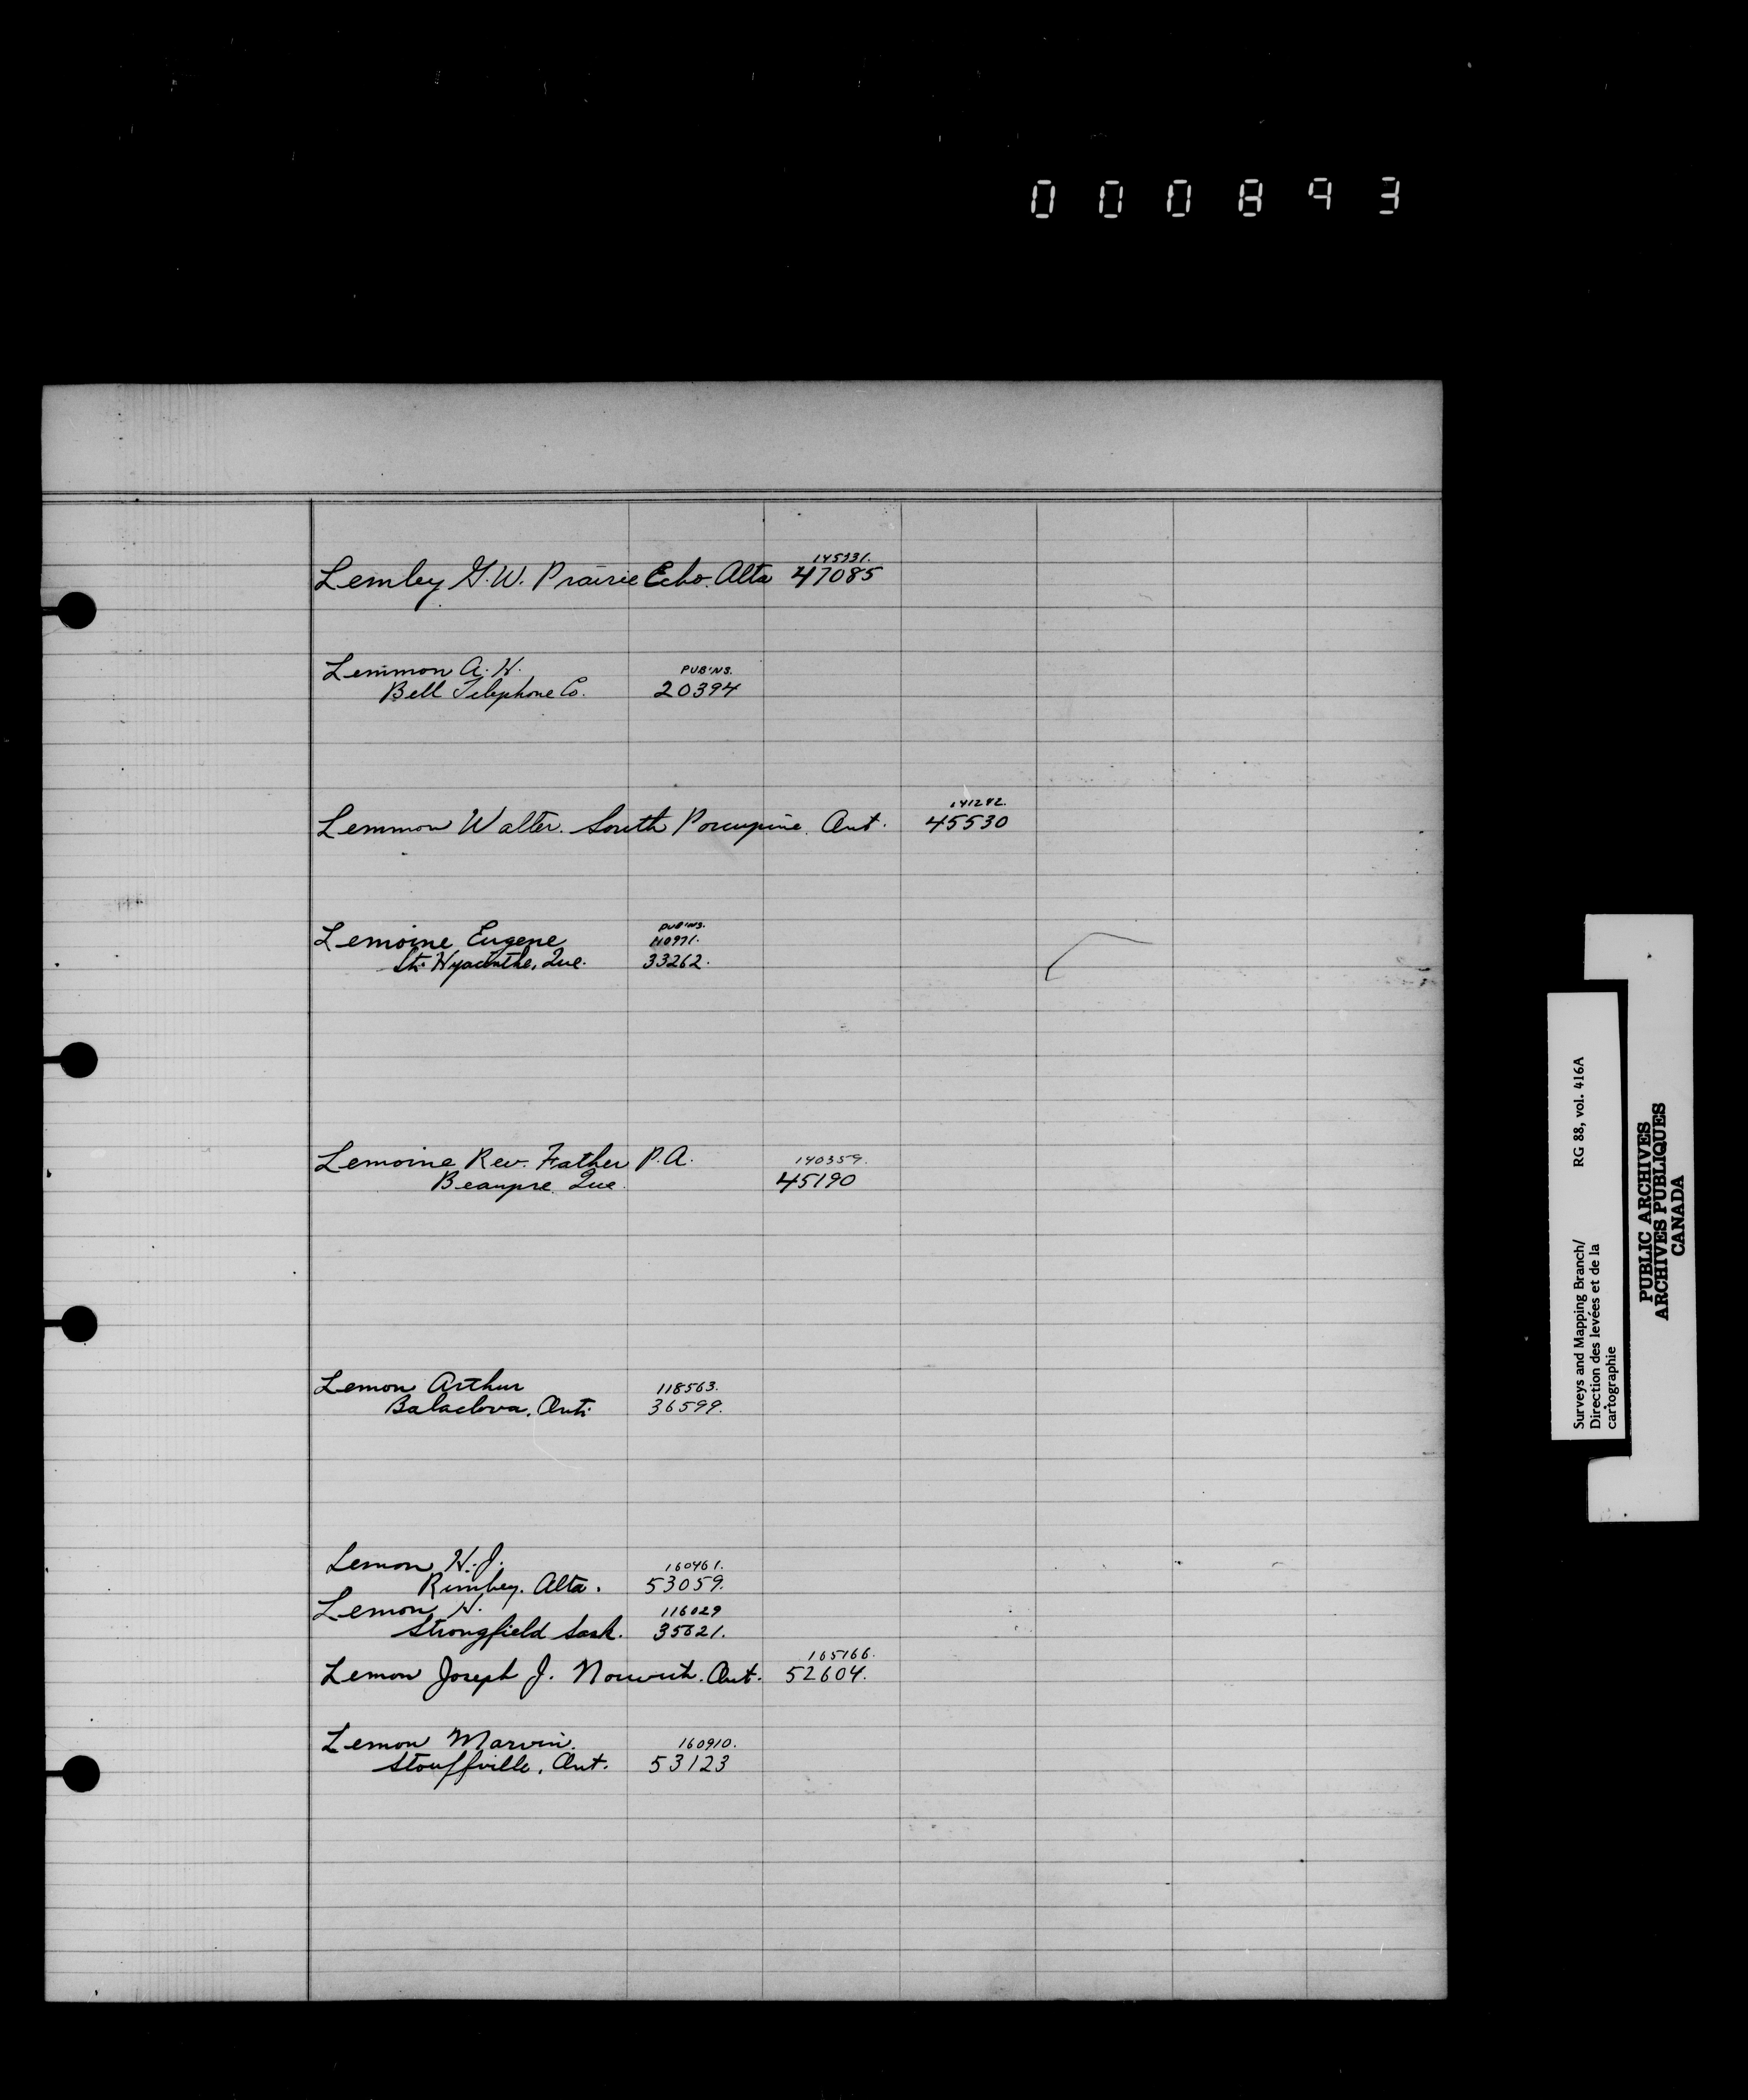 000843
145931.
Lemley G.W. Prairie Echo. Alta 47085
Lemmon A. H. PUB'NS.
Bell Telephone Co. 20394
141282.
Lemmon Walter. South Porcupine. Ont. 45530
PUB'NS.
Lemoine Eugene 110971.
St. Hyacinthe, Que. 33262.
Lemoine Rev. Father P.A. 140359.
Beaupre. Que. 45190
Lemon Arthur 118563.
Balaclava, Ont. 36599.
Lemon H. J. 160461.
Rimbey. Alta. 53059.
Lemon H. 116029
Strongfield Sask. 35621.
165166.
Lemon Joseph J. Norwich. Ont. 52604.
Lemon Marvin. 160910.
Stouffville, Ont. 53123
Surveys and Mapping Branch/ RG 88, vol. 416A
Direction des levées et de la
cartographie
PUBLIC ARCHIVES
ARCHIVES PUBLIQUES
CANADA